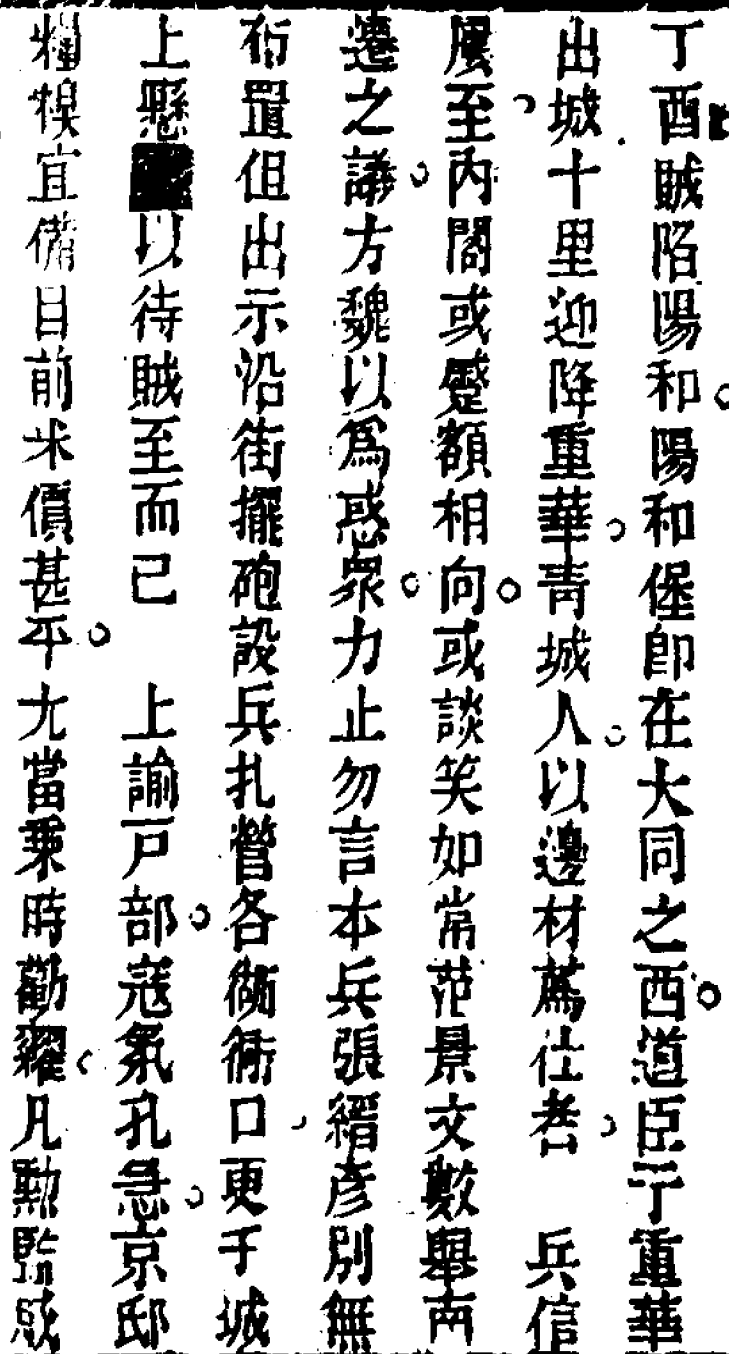 丁酉賊陷陽和陽和堡卽在大同之西道臣于重華
出城十里迎降重華靑城人以邊材薦仕者 兵信
屢至內閣或蹙額相向或談笑如常范景文數舉南
遷之議方魏以爲惑衆力止勿言本兵張縉彥別無
布置但出示沿街擺砲設兵扎營各衚衕口更于城
上懸以待賊至而已 上諭戸部寇氛孔急京邸
糧糗宜備目前米價甚平尢當乘時勸糴凡勳監戚